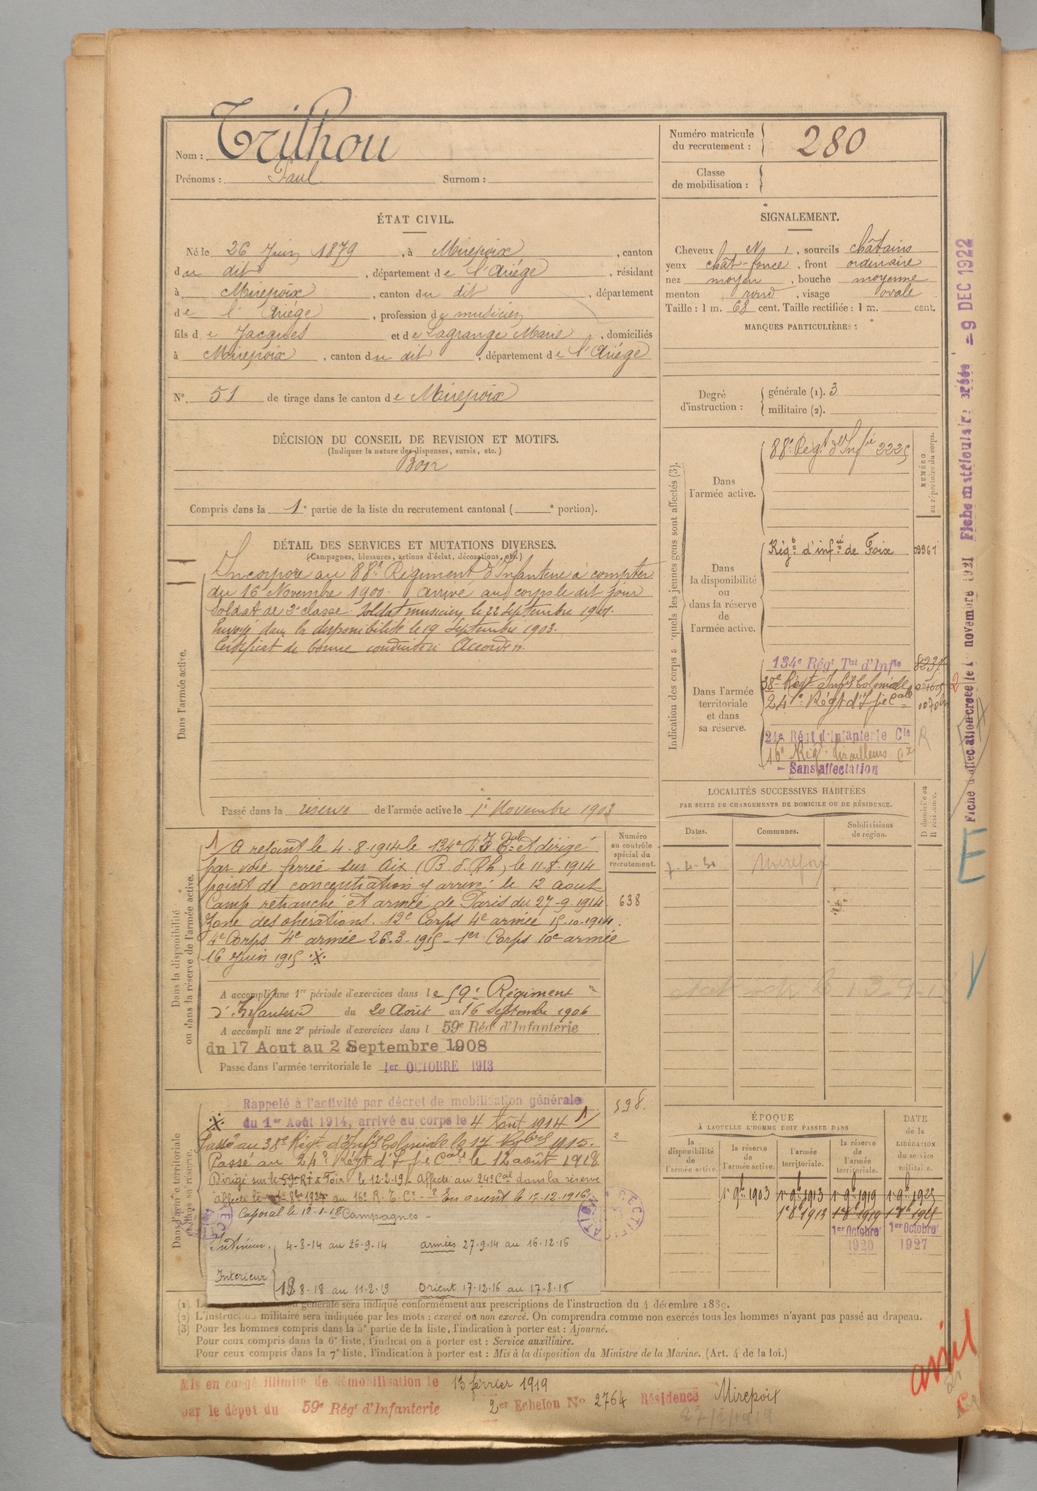 Nom : Trilhou
Prénoms : Paul Surnom :
Numéro matricule du recrutement : 280
Classe de mobilisation :
ÉTAT CIVIL.
Né le 26 Juin 1879, à Mirepoix, canton
du dit, département de l'Ariége, résidant
à Mirepoix, canton du dit, département
de l'Ariège, profession de musicien
fils de Jacques et de Lagrange Marie, domiciliés
à Mirepoix, canton du dit, département de l'Ariége
N° 51 de tirage dans le canton de Mirepoix
DÉCISION DU CONSEIL DE REVISION ET MOTIFS.
(Indiquer la nature des dispenses, sursis, etc.)
Bon
Compris dans la 1e partie de la liste du recrutement cantonal ( e portion).
SIGNALEMENT.
Cheveux N 1, sourcils châtains
yeux chât-foncé, front ordinaire
nez moyen, bouche moyenne
menton rond, visage ovale
Taille : 1 m. 68 cent. Taille rectifiée : 1 m. cent.
MARQUES PARTICULIÈRES :
Degré d'instruction :
générale (1). 3
militaire (2).
DÉTAIL DES SERVICES ET MUTATIONS DIVERSES.
(Campagnes, blessures, actions d'éclat, décorations, etc.)
Dans l'armée active.
Incorporé au 88e Régiment d'Infanterie à compter
du 16 Novembre 1900. Arrivé au corps le dit jour
Soldat de 2e classe. Soldat musicien le 22 Septembre 1901.
Envoyé dans la disponibilité le 19 Septembre 1903.
Certificat de bonne conduite Accordé.
Passé dans la réserve de l'armée active le 1er Novembre 1903
Indication des corps auxquels les jeunes gens sont affectés (3).
NUMÉRO au répertoire du corps.
Dans l'armée active.
88e Régt d'Infie 2225
Dans la disponibilité ou dans la réserve de l'armée active.
Régt d'infie de Foix
Dans l'armée territoriale et dans sa réserve.
134e Régt Tal d'Infie
38e Régt d'Infie Coloniale
24e Régt d'Ifie Cale
24e Régt d'Infanterie Cle
16e Rég. tirailleurs
Sans affectation
LOCALITÉS SUCCESSIVES HABITÉES
PAR SUITE DE CHANGEMENTS DE DOMICILE OU DE RÉSIDENCE.
Dates. Communes. Subdivisions de région. D domicile ou R résidence.
Mirepoix
Dans la disponibilité ou dans la réserve de l'armée active.
Numéro au contrôle spécial du recrutement.
638
A rejoint le 4-8-1914 le 134e R.I.Tal et dirigé
par voie ferrée sur Aix (B. d. Rh) le 11-8-1914
point de concentration y arrivé le 12 août
Camp retranché et armée de Paris du 27-9-1914
Zone des opérations. 12e Corps 4e armée 15-10-1914.
4e Corps 4e armée 26-3-1915 - 1er Corps 10e armée
16 Juin 1915
A accompli une 1re période d'exercices dans le 59e Régiment
d'Infanterie du 20 Août au 16 Septembre 1906
A accompli une 2e période d'exercices dans l 59e Rég d'Infanterie
du 17 Aout au 2 Septembre 1908
Passé dans l'armée territoriale le 1er OCTOBRE 1913
Dans l'armée territoriale et dans sa réserve.
Rappelé à l'activité par décret de mobilisation générale
du 1er Août 1914, arrivé au corps le 4 Août 1914
Passé au 38e Régt d'Infie Coloniale le 17 1915.
Passé au 24e Régt d'Ifie Cale le 12 août 1918
Caporal le 12-1-18
Campagnes
Intérieur, 4-8-14 au 26-9-14 armées 27-9-14 au 16-12-16
Intérieur 18-8-18 au 11-2-19 Orient 17-12-16 au 17-8-18
ÉPOQUE
À LAQUELLE L'HOMME DOIT PASSER DANS
DATE de la LIBÉRATION du service militaire.
la disponibilité de l'armée active. la réserve de l'armée active. l'armée territoriale. la réserve de l'armée territoriale.
1er 9bre 1903 1er 9bre 1913 1er 9bre 1919 1er 9bre 1925
1er 8bre 1913 1er 8bre 1919
1er Octobre 1920 1er Octobre 1927
(2) L'instruction militaire sera indiquée par les mots : exercé ou non exercé. On comprendra comme non exercés tous les hommes n'ayant pas passé au drapeau.
(3) Pour les hommes compris dans la 5e partie de la liste, l'indication à porter est : Ajourné.
Pour ceux compris dans la 6e liste, l'indication à porter est : Service auxiliaire.
Pour ceux compris dans la 7e liste, l'indication à porter est : Mis à la disposition du Ministre de la Marine. (Art. 4 de la loi.)
Mis en congé illimité de démobilisation le 13 février 1919
par le dépôt du 59e Rég d'Infanterie 2er Echelon N° 2764 Résidence Mirepoix
avril